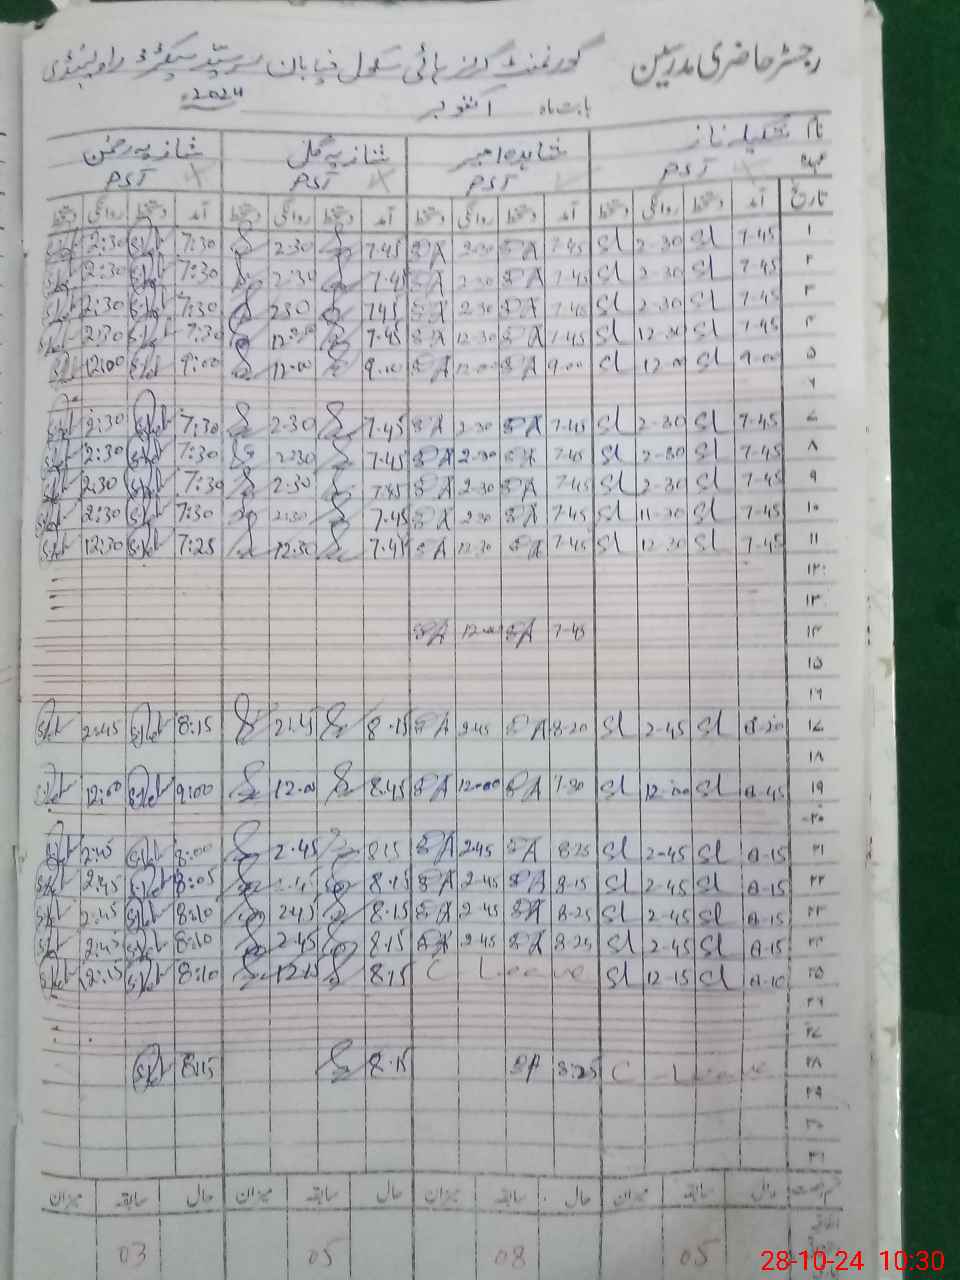 رجسٹر حاضری مدرسین گورنمنٹ گرلز ہائی سکول خیابان سرسید سیکٹر 3 راولپنڈی
بابت ماہ اکتوبر 2024ء
نام شکیلہ ناز شاہدہ امبر شازیہ گل شازیہ رحمٰن
عہدہ PST PST PST PST
تاریخ آمد دستخط روانگی دستخط آمد دستخط روانگی دستخط آمد دستخط روانگی دستخط آمد دستخط روانگی دستخط
۱ 7-45 Sl 2-30 Sl 7-45 SA 2-30 SA 7-45 2-30 7:30 2:30
۲ 7-45 Sl 2-30 Sl 7-45 SA 2-30 SA 7-45 2-30 7:30 2:30
۳ 7-45 Sl 2-30 Sl 7-45 SA 2-30 SA 7-45 2-30 7:30 2:30
۴ 7-45 Sl 12-30 Sl 7-45 SA 12-30 SA 7-45 12-30 7:30
۵ 9-00 Sl 12-00 Sl 9-00 SA 12-00 SA 9-00 12-00 9:00 12:00
۶
۷ 7-45 Sl 2-30 Sl 7-45 SA 2-30 SA 7-45 2-30 7:30 2:30
۸ 7-45 Sl 2-30 Sl 7-45 SA 2-30 SA 7-45 2-30 7:30 2:30
۹ 7-45 Sl 2-30 Sl 7-45 SA 2-30 SA 7-45 2-30 7:30 2:30
۱۰ 7-45 Sl 11-30 Sl 7-45 SA 2-30 SA 7-45 2-30 7:30 2:30
۱۱ 7-45 Sl 12-30 Sl 7-45 SA 12-30 SA 7-45 12-30 7:25 12:30
۱۲
۱۳
۱۴ 7-45 SA 12-00 SA
۱۵
۱۶
۱۷ 8-20 Sl 2-45 Sl 8-20 SA 2-45 SA 8-15 2-45 8:15 2:45
۱۸
۱۹ 8-45 Sl 12-00 Sl 7-30 SA 12-00 SA 8-45 12-00 9:00 12:00
۲۰
۲۱ 8-15 Sl 2-45 Sl 8-25 SA 2-45 SA 8-15 2-45 8:00 2:45
۲۲ 8-15 Sl 2-45 Sl 8-15 SA 2-45 SA 8-15 2-45 8:05 2:45
۲۳ 8-15 Sl 2-45 Sl 8-25 SA 2-45 SA 8-15 2-45 8:10 2:45
۲۴ 8-15 Sl 2-45 Sl 8-25 SA 2-45 SA 8-15 2-45 8:10 2:45
۲۵ 8-10 Sl 12-15 Sl C - Leave 8-15 12-15 8:10
۲۶
۲۷
۲۸ C - Leave 8-25 SA 8-15 8:15
۲۹
۳۰
۳۱
حال سابقہ میزان حال سابقہ میزان حال سابقہ میزان حال سابقہ میزان
اتفاقی 05 08 05 03
28-10-24 10:30